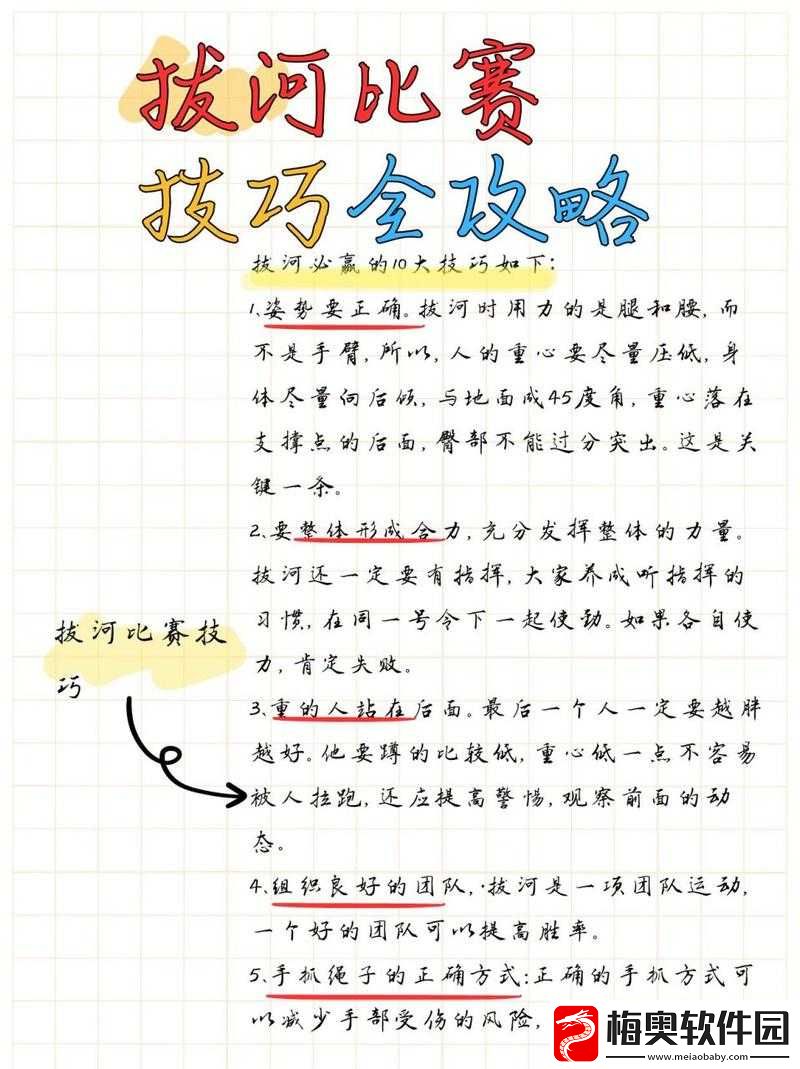 拔河比赛
技巧全攻略
拔河必赢的10大技巧如下:
1、姿势要正确。拔河时用力的是腿和腰,而
不是手臂,所以,人的重心要尽量压低,身
体尽量向后倾,与地面成45度角,重心落在
支撑点的后面,臀部不能过分突出。这是关
键一条。
2、要整体形成合力,充分发挥整体的力量。
拔河还一定要有指挥,大家养成听指挥的
习惯,在同一号令下一起使劲。如果各自使
力,肯定失败。
拔河比赛技
巧
3、重的人站在后面。最后一个人一定要越胖
越好。他要蹲的比较低,重心低一点不容易
被人拉跑,还应提高警惕,观察前面的动
态。
4、组织良好的团队,·拔河是一项团队运动,
一个好的团队可以提高胜率。
5、手抓绳子的正确方式:正确的手抓方式可
以减少手部受伤的风险,
梅奥软件园
www.meiaobaby.com